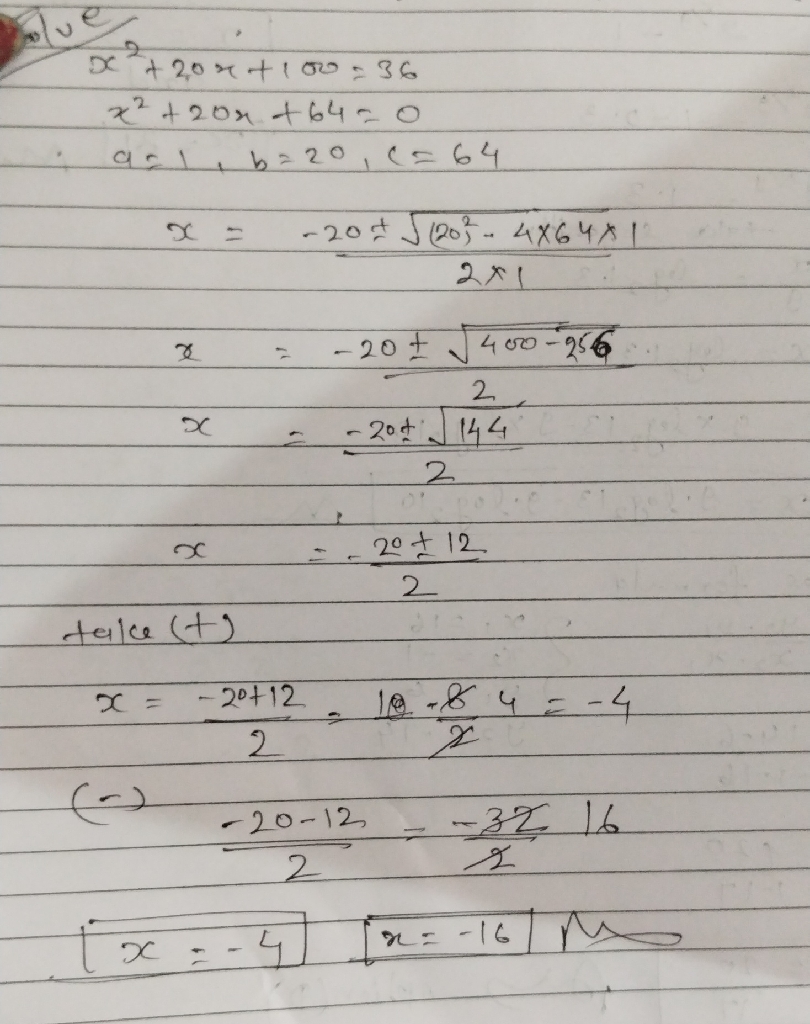 Solve
x² + 20x + 100 = 36
x² + 20x + 64 = 0
a = 1, b = 20, c = 64
x = -20 ± √(20)² - 4×64×1
2×1
x = -20 ± √400-256
2
x = -20 ± √144
2
x = -20 ± 12
2
take (+)
x = -20+12 = -8 4 = -4
2 2
(-)
-20-12 = -32 16
2 2
x = -4 x = -16